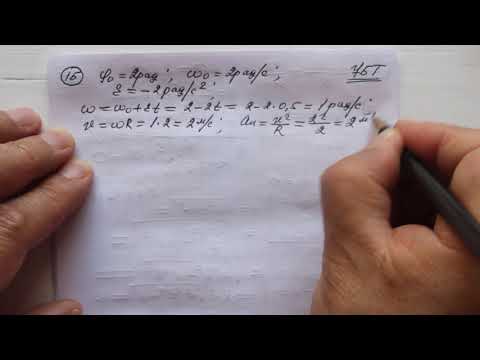 16 φ₀ = 2 рад; ω₀ = 2 рад/с; УБТ
ε = -2 рад/с²;
ω = ω₀ + εt = 2 - 2t = 2 - 2·0,5 = 1 рад/с;
v = ωR = 1·2 = 2 м/с; aₙ = v²/R = 2²/2 = 2 м